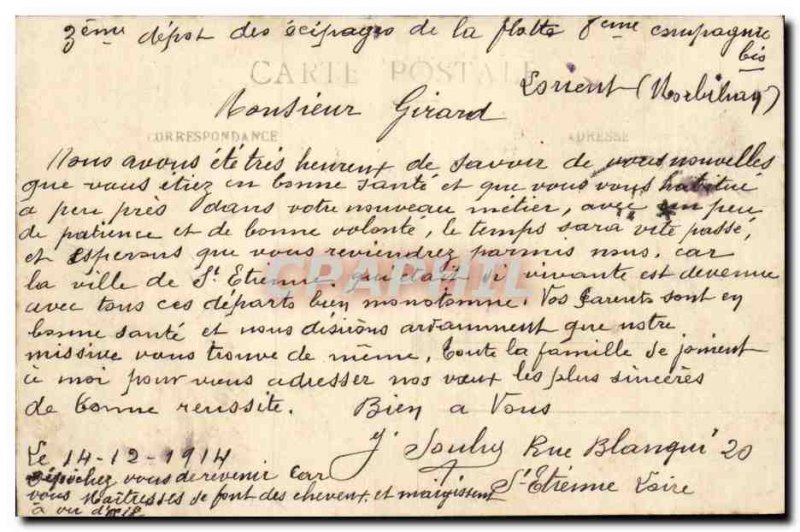 3ème dépot des écipages de la flotte 8eme compagnie
bis
CARTE POSTALE
Lorient (Morbihan)
Monsieur Girard
CORRESPONDANCE
ADRESSE
Nous avons été très heureux de savoir de vous nouvelles
que vous étiez en bonne santé et que vous vous habitué
a peu près dans votre nouveau métier, avec un peu
de patience et de bonne volonté, le temps sara vite passé,
et esperons que vous reviendrez parmis nous, car
la ville de St Etienne qui était si vivante est devenue
avec tous ces départs bien monotonne. Vos parents sont en
bonne santé et nous désirons ardamment que notre
missive vous trouve de même, toute la famille se joinent
à moi pour vous adresser nos vœux les plus sincères
de bonne reussite. Bien a Vous
Le 14-12-1914
Rue Blanqui 20
St Etienne Loire
Dépichez vous de revenir car
vous Maîtresses se font des cheveux, et maigissent
a vu d'
CPAPHIL